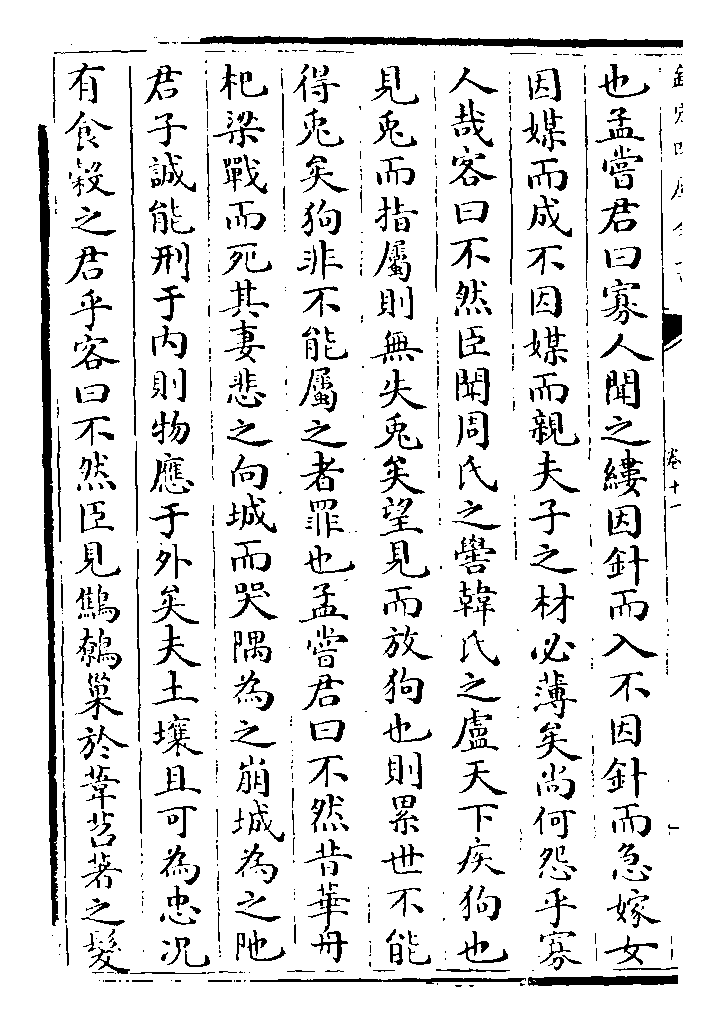 也孟嘗君曰寡人聞之縷因針而入不因針而急嫁女
因媒而成不因媒而親夫子之材必薄矣尚何怨乎寡
人哉客曰不然臣聞周氏之嚳韓氏之盧天下疾狗也
見兎而指屬則無失兎矣望見而放狗也則累世不能
得兎矣狗非不能屬之者罪也孟嘗君曰不然昔華舟
杞梁戰而死其妻悲之向城而哭隅為之崩城為之阤
君子誠能刑于内則物應于外矣夫土壤且可為忠况
有食穀之君乎客曰不然臣見鷦鷯巢於葦苕著之髮
卷十一